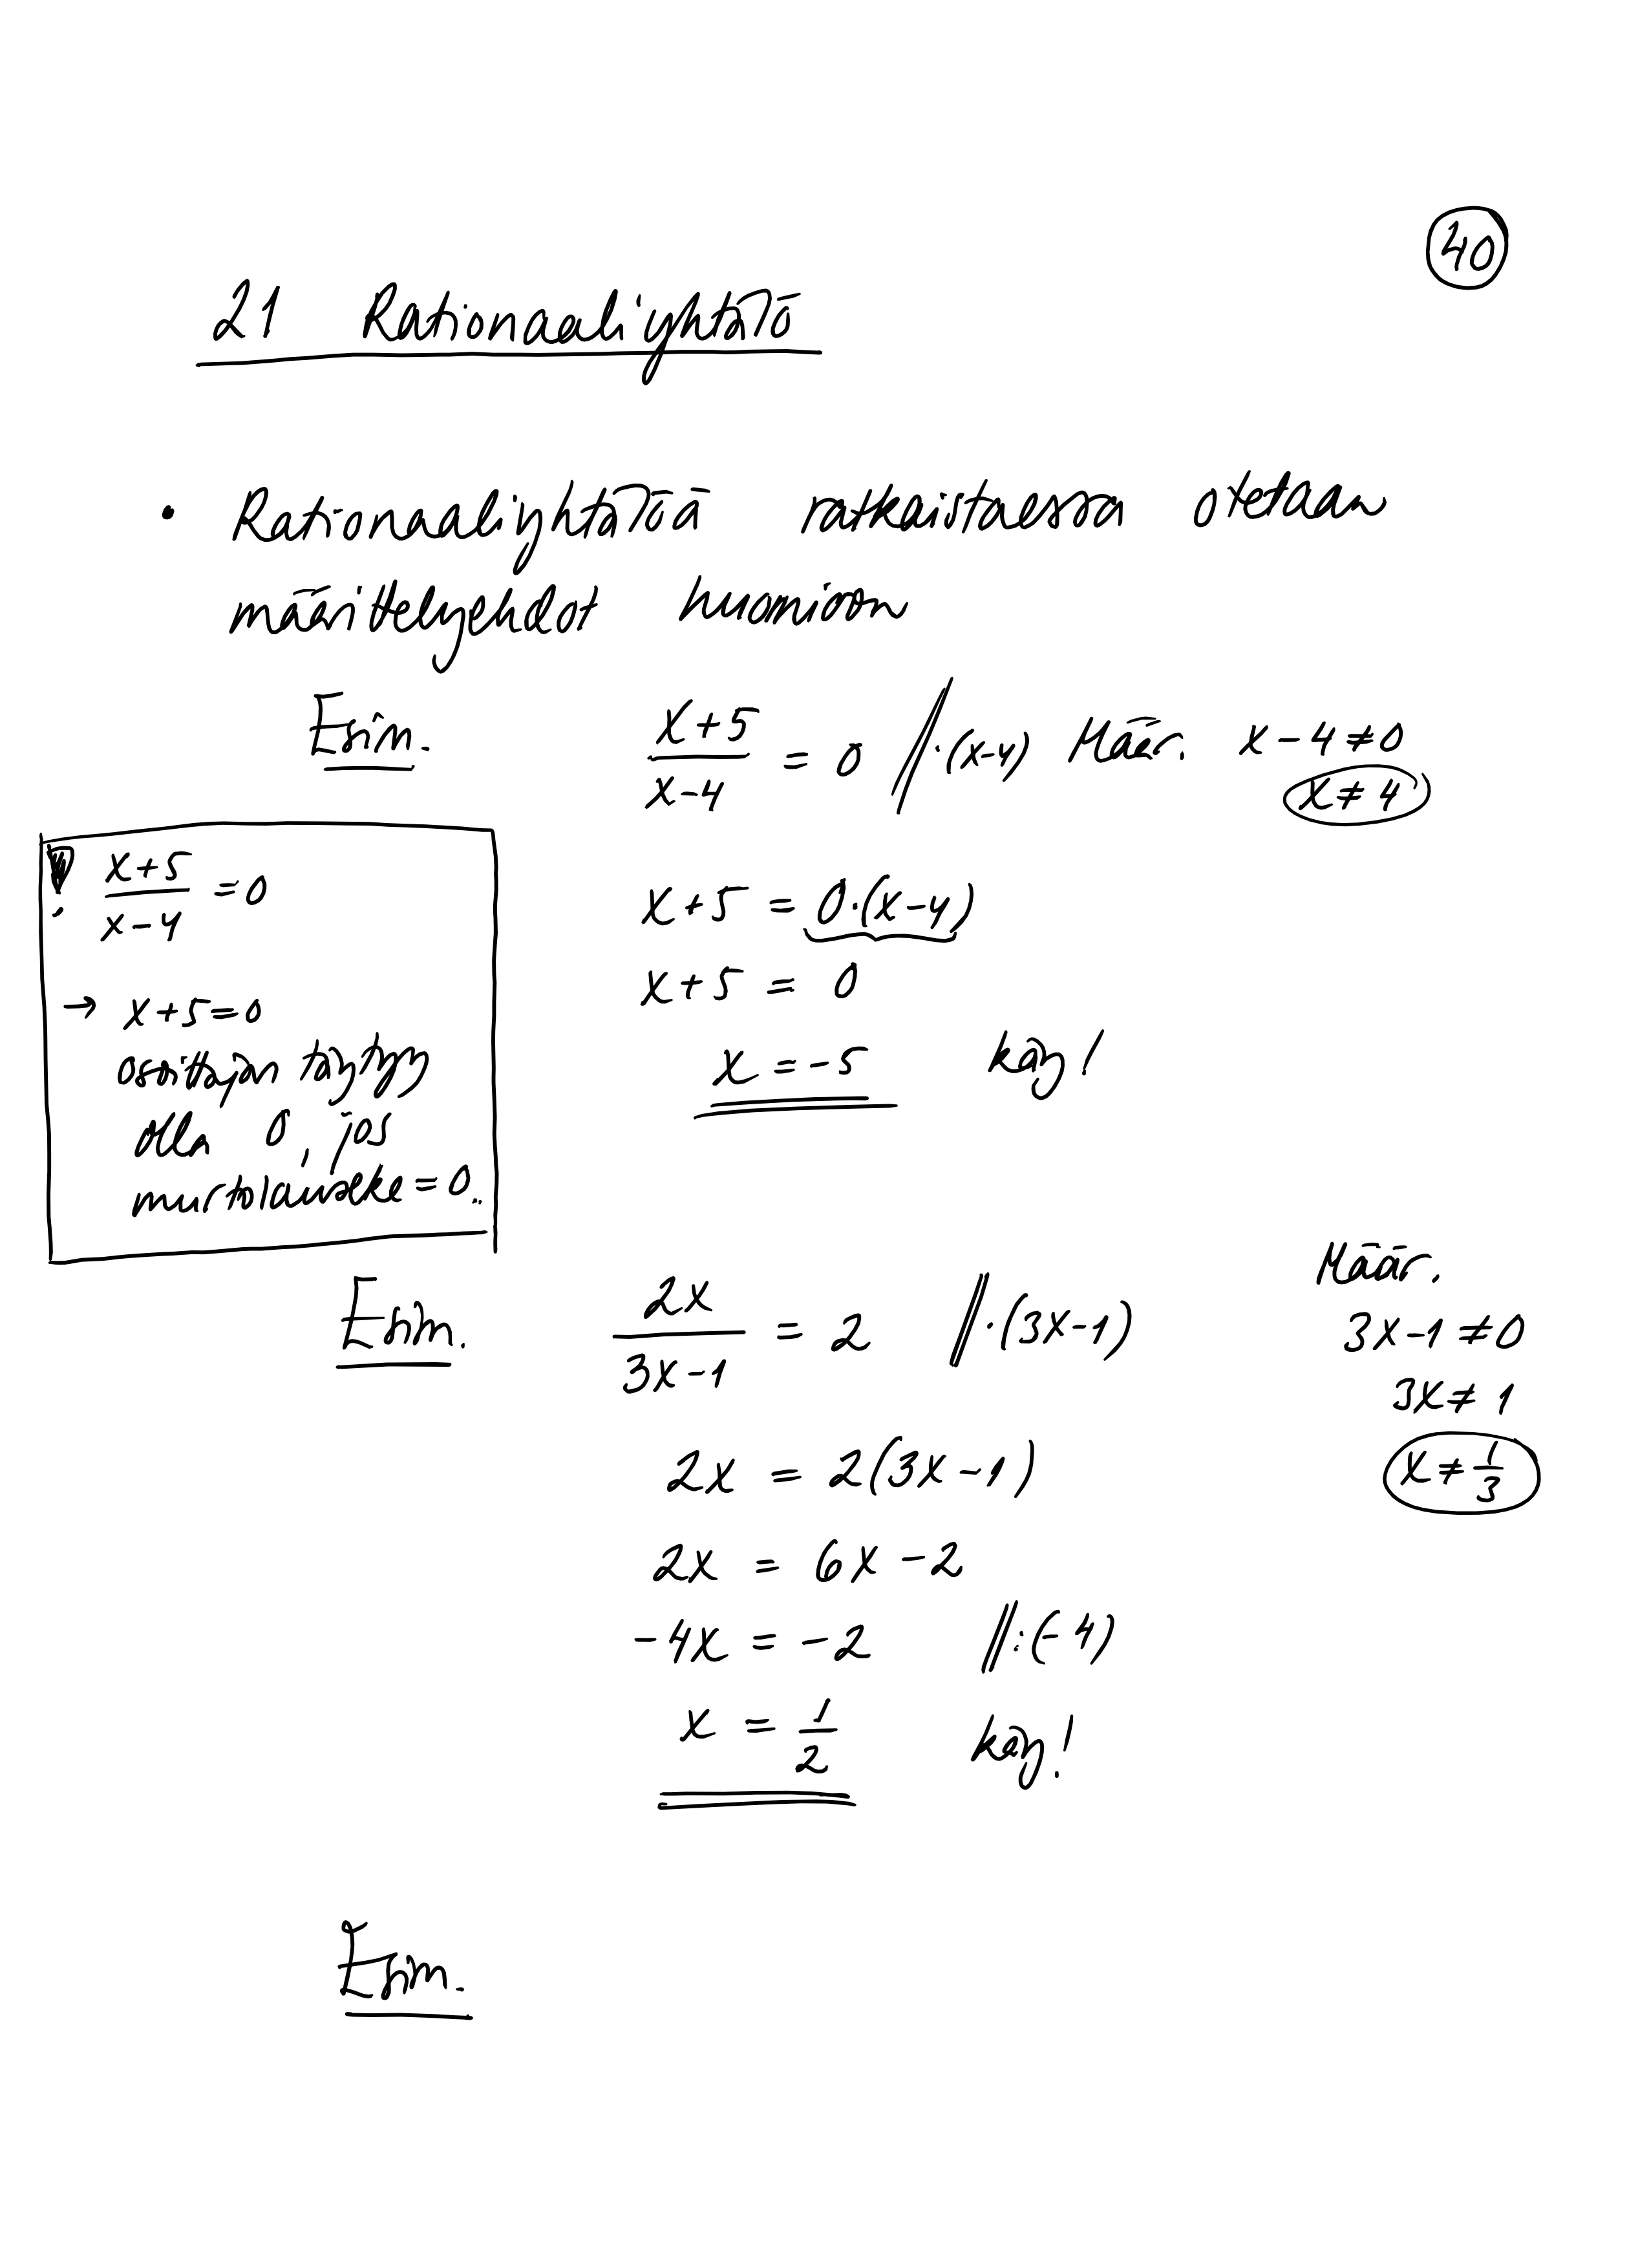 40
21 Rationaaliyhtälö
• Rationaaliyhtälöä ratkaistaessa otetaan
määrittelyehdot huomioon
Esim. (x+5)/(x-4) = 0 // ·(x-4) Määr. x-4≠0
x≠4
! (x+5)/(x-4) = 0
→ x+5=0
osoittajan täytyy
olla 0, jos
murtolauseke = 0.
x+5 = 0·(x-4)
x+5 = 0
x = -5 käy!
Esim. 2x/(3x-1) = 2 // ·(3x-1)
Määr.
3x-1≠0
3x≠1
x≠1/3
2x = 2(3x-1)
2x = 6x-2
-4x = -2 // :(-4)
x = 1/2 käy!
Esim.